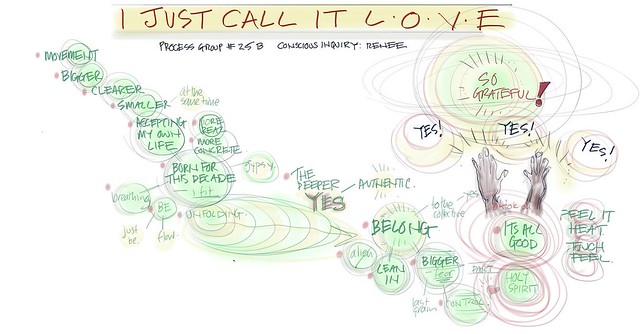 I JUST CALL IT L·O·V·E
PROCESS GROUP # 25 B CONSCIOUS INQUIRY: RENEE
MOVEMENT
BIGGER
CLEARER
SMALLER
at the
same time
ACCEPTING
MY OWN
LIFE
MORE
REAL
MORE
CONCRETE
BORN FOR
THIS DECADE
I fit
Gypsy
breathing
BE
just
be.
flow.
UNFOLDING.
THE
DEEPER
YES
AUTHENTIC.
BELONG
to the
collective
yes
alien
LEAN
IN
BIGGER
fear
PAST
last
grain
CONTROL
SO
GRATEFUL!
YES!
YES!
YES!
IT'S ALL
GOOD
HOLY
SPIRIT
FEEL IT
HEAT
TOUCH
FEEL.